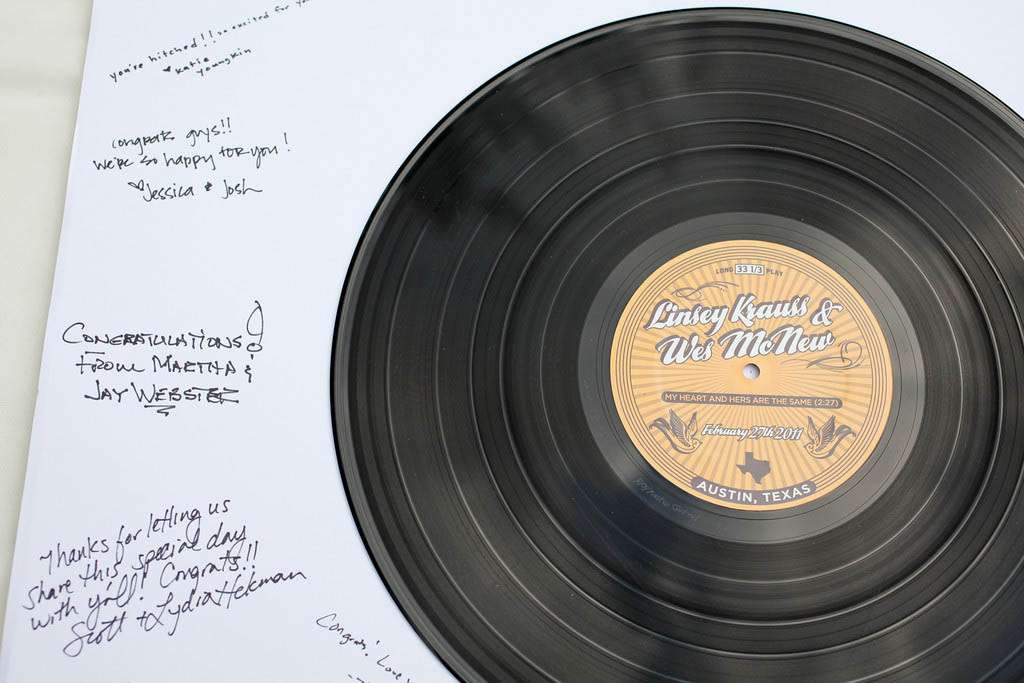 you're hitched!! so excited for you
♥ katie
youngkin
congrats guys!!
we're so happy for you!
♥ Jessica & Josh
CONGRATULATIONS!
FROM MARTHA &
JAY WEBSTER
Thanks for letting us
share this special day
with y'all! Congrats!!
Scott + Lydia Hekman
Congrats! Love
LONG 33 1/3 PLAY
Linsey Krauss &
Wes McNew
MY HEART AND HERS ARE THE SAME (2:27)
February 27th 2011
AUSTIN, TEXAS